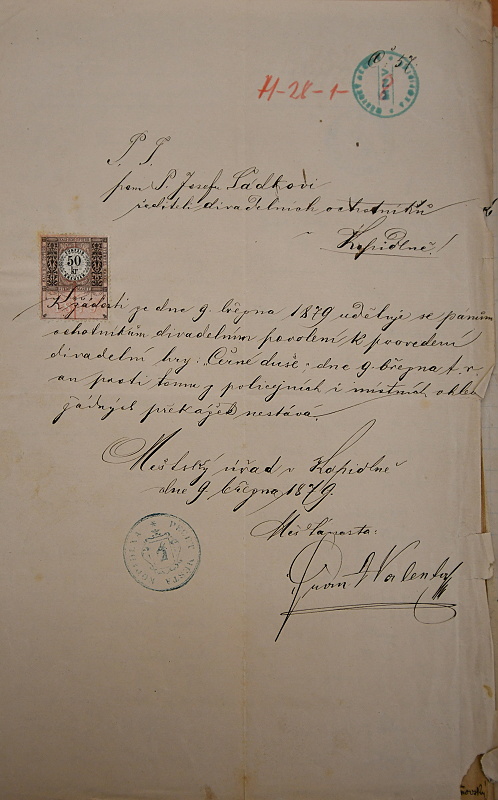 57.
H-28-1-
P. T.
panu P. Josefu Sádkovi
řediteli divadelních ochotníků
v Kopidlně!
50
kr
K žádosti ze dne 9. března 1879 uděluje se panům
ochotníkům divadelním povolení k provedení
divadelní hry: Černé duše; dne 9. března t. r.
an proti tomu z policejních i místních ohledů
žádných překážek nestává.
Městský úřad v Kopidlně
dne 9. března 1879.
Měšťanosta:
Walenta